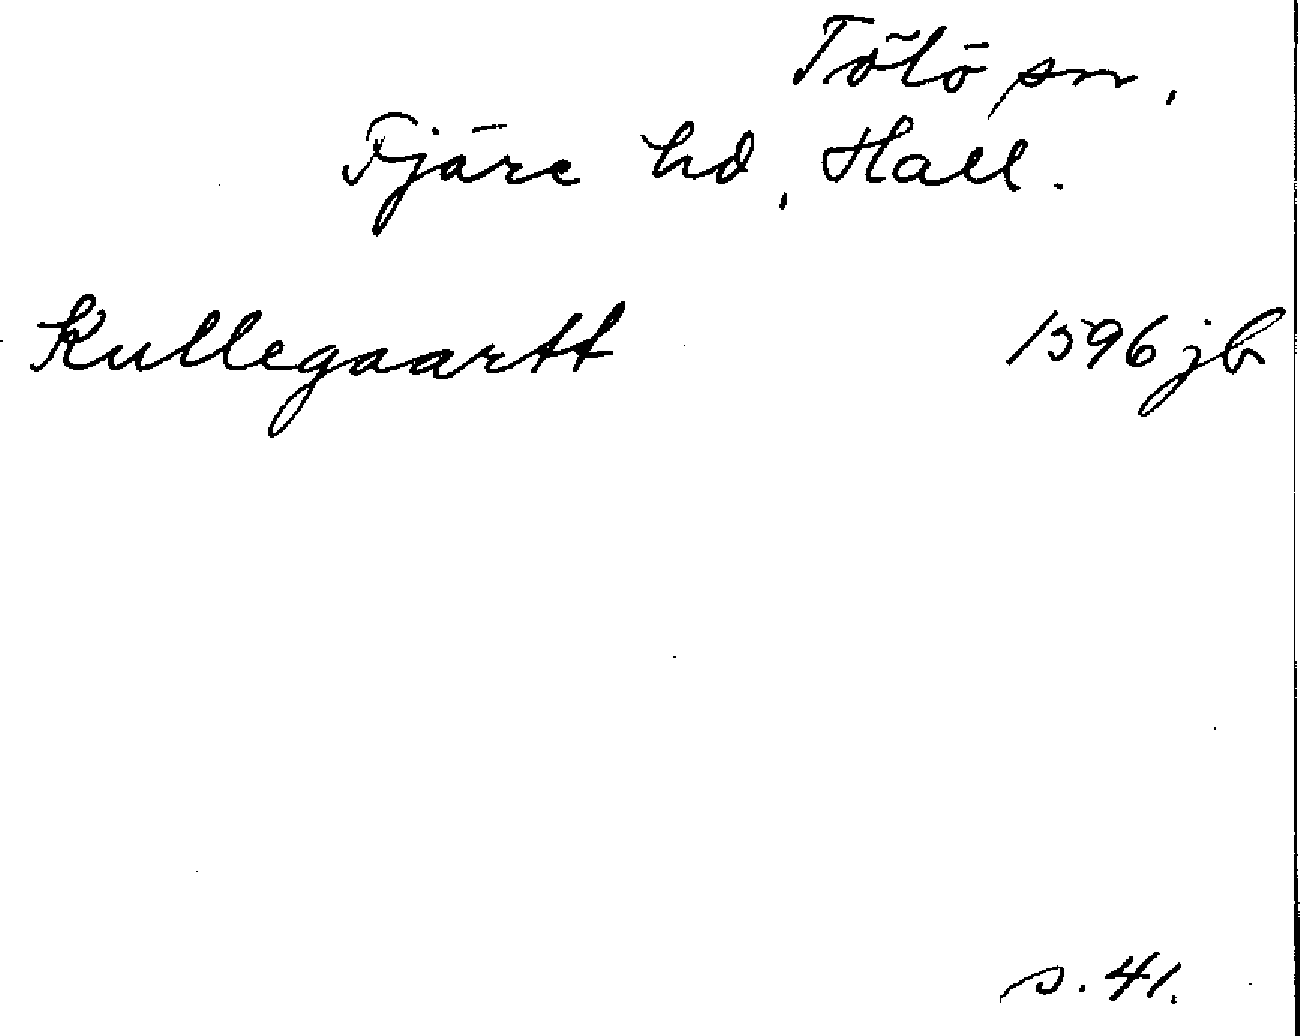 Tölö sn,
Fjäre hd, Hall.
Kullegaartt 1596 jb
s. 41.